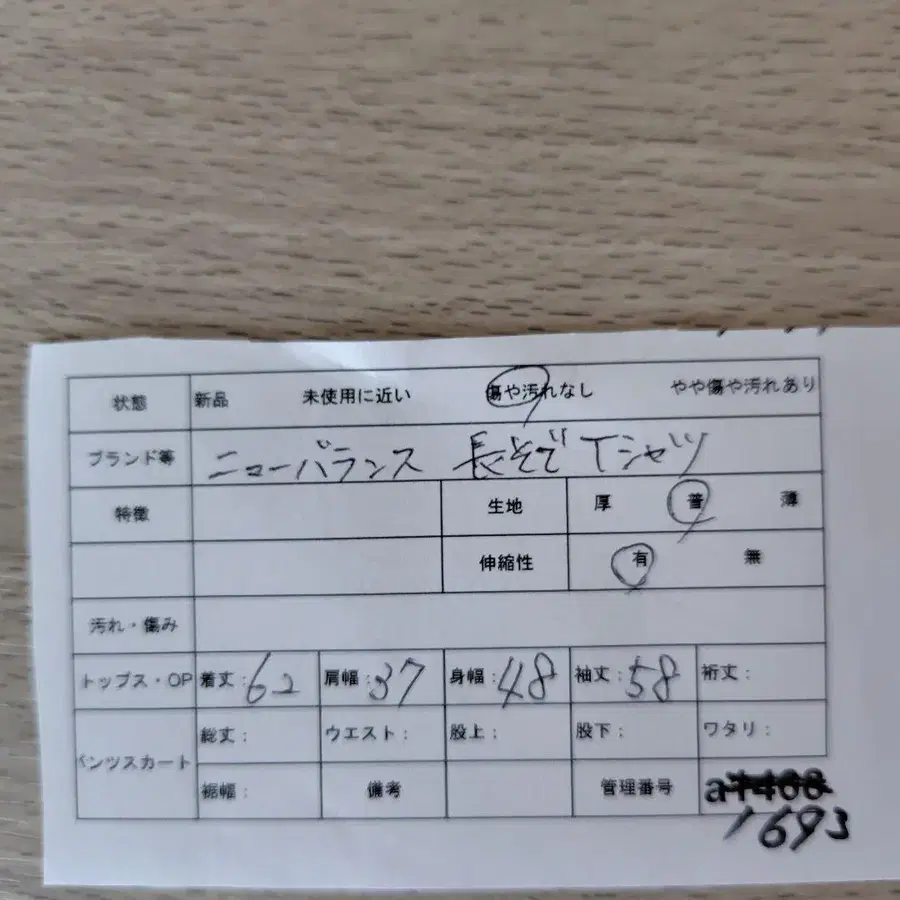 状態 新品 未使用に近い 傷や汚れなし やや傷や汚れあり
ブランド等 ニューバランス 長そでTシャツ
特徴 生地 厚 普 薄
伸縮性 有 無
汚れ・傷み
トップス・OP 着丈:62 肩幅:37 身幅:48 袖丈:58 裄丈:
パンツスカート 総丈: ウエスト: 股上: 股下: ワタリ:
裾幅: 備考 管理番号 a
1693